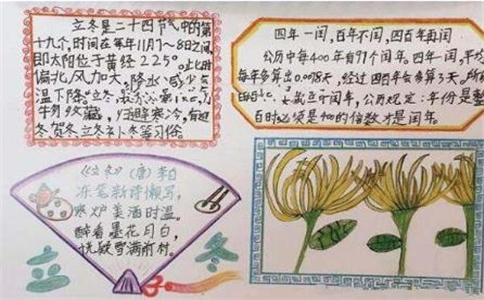 立冬是二十四节气中的第
十九个,时间在每年11月7~8日之间,
即太阳位于黄经225°。此时
偏北风加大,降水减少气
温下降。立冬
收藏,归避寒冷,有迎
冬、贺冬、立冬补冬等习俗。
四年一闰,百年不闰,四百年再闰
公历中每400年有97个闰年。四年一闰,平均
每年多算出0.0078天,经过四百年会多算3天,所
闰年,公历规定:年份是整
百时必须是400的倍数才是闰年。
《立冬》(唐)李白
冻笔新诗懒写,
寒炉美酒时温。
醉看墨花月白,
恍疑雪满前村。
立
冬